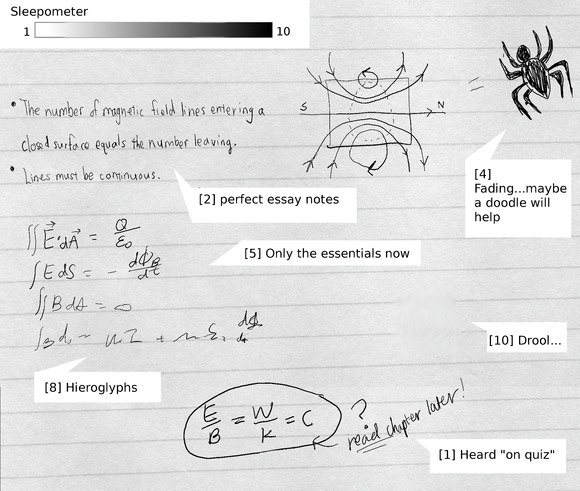 Sleepometer
1 10
• The number of magnetic field lines entering a
closed surface equals the number leaving.
• Lines must be continuous.
S N
=
[4]
Fading...maybe
a doodle will
help
[2] perfect essay notes
∬ E⃗·dA⃗ = Q/ε₀
[5] Only the essentials now
∫ E dS = - dΦB/dt
∬ B dA = 0
[10] Drool...
[8] Hieroglyphs
E/B = W/K = C
? read chapter later!
[1] Heard "on quiz"